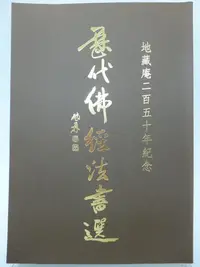 地藏庵二百五十年紀念
歷代佛經法書選